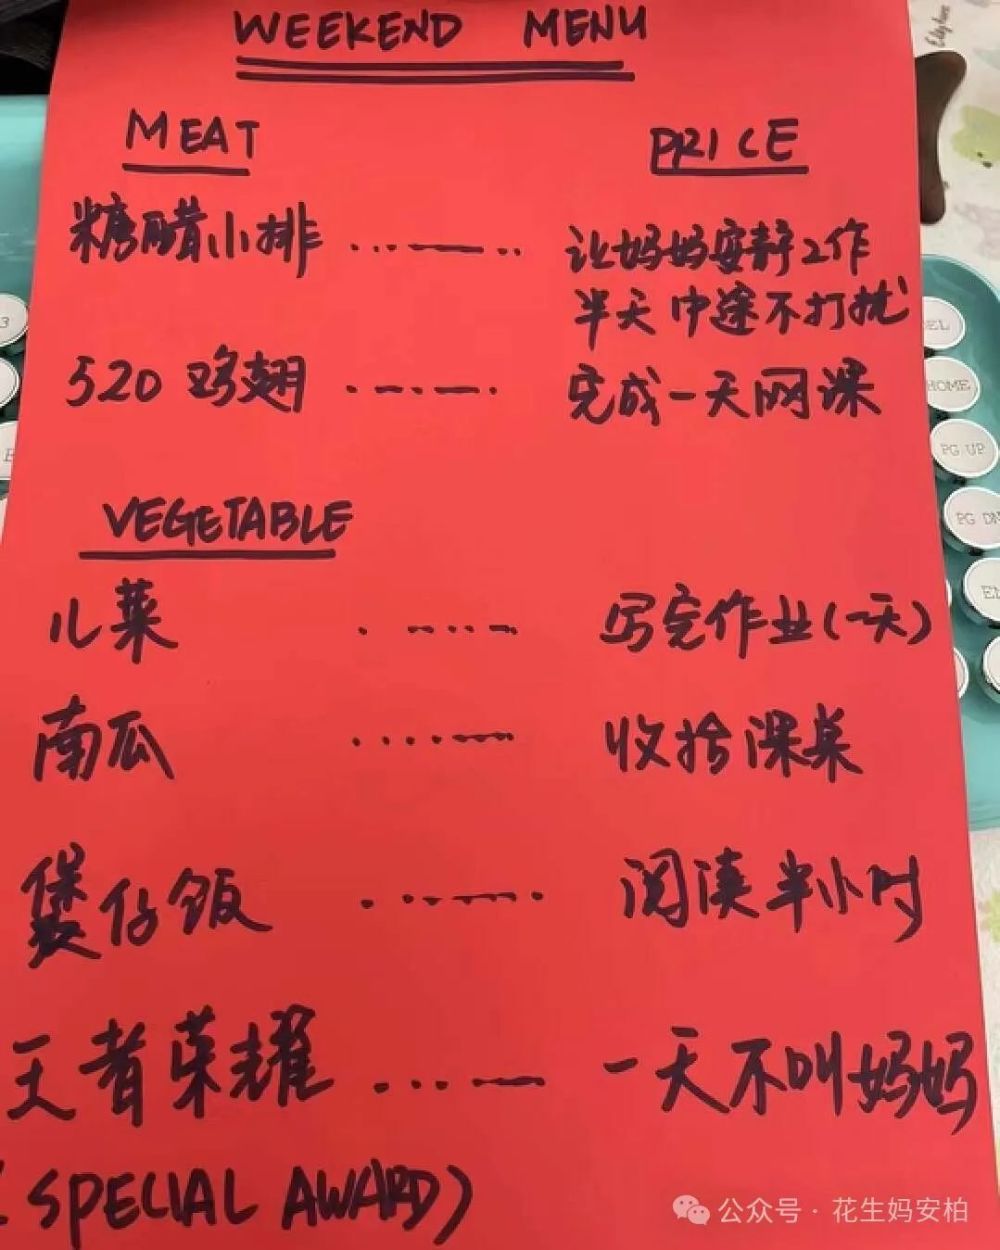 WEEKEND MENU
MEAT PRICE
糖醋小排 让妈妈安静工作
半天中途不打扰
520 鸡翅 完成一天网课
VEGETABLE
儿菜 写完作业(一天)
南瓜 收拾课桌
煲仔饭 阅读半小时
王者荣耀 一天不叫妈妈
(SPECIAL AWARD)
DEL
HOME
PG UP
PG DN
EN
3
公众号·花生妈安柏